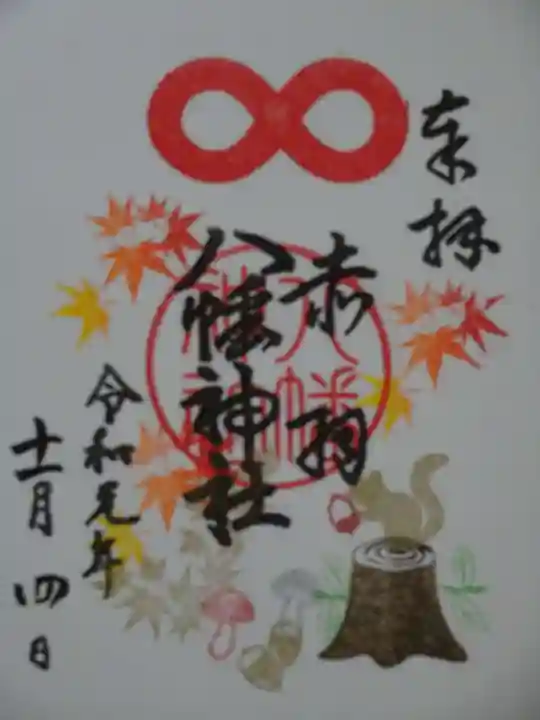 奉拝
赤羽
八幡神社
令和元年
十一月四日